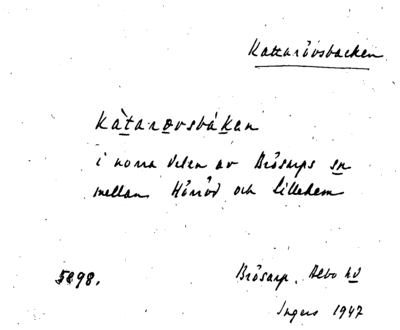 Kattarövsbacken
kàtarovsbákan
i norra delen av Brösarps sn
mellan Hörröd och Lillehem
5898.
Brösarp, Albo hd
Ingers 1947